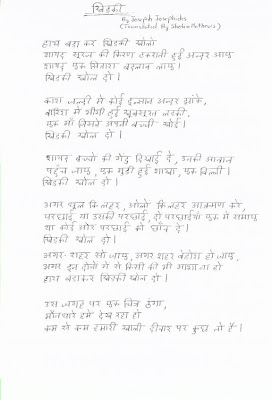 खिड़की
By Joseph Josephides
(Translated By Shaha Mathrus)
हाथ बढ़ा कर खिड़की खोलो
शायद सूरज की किरण टकराती हुई अन्दर आए
शायद एक सितारा बदलाव लाए।
खिड़की खोल दो।
काश जल्दी में कोई इन्सान अन्दर झांके,
बारिश में भीगी हुई खूबसूरत लड़की,
एक माँ जिसने अपनी बच्ची खोई।
खिड़की खोल दो।
शायद बच्चों की गेंद दिखाई दे, उनकी आवाज
पहुंच जाए, एक मुड़ी हुई शाखा, एक बिल्ली।
खिड़की खोल दो।
अगर फूल कि लहर, ओलों कि लहर आक्रमण करे,
परछाई, या उसकी परछाई, दो परछाईयाँ एक में समाए
या कोई और परछाई को छाँट दे।
खिड़की खोल दो।
अगर शहर सो जाए, अगर शहर बेहोश हो जाए,
अगर इन दोनों में से किसी की भी आवाज न हो
हाथ बढ़ाकर खिड़की खोल दो।
उस जगह पर एक चित्र होगा,
हमें देख रहा हो
कम से कम हमारी खाली दीवार पर कुछ तो है।